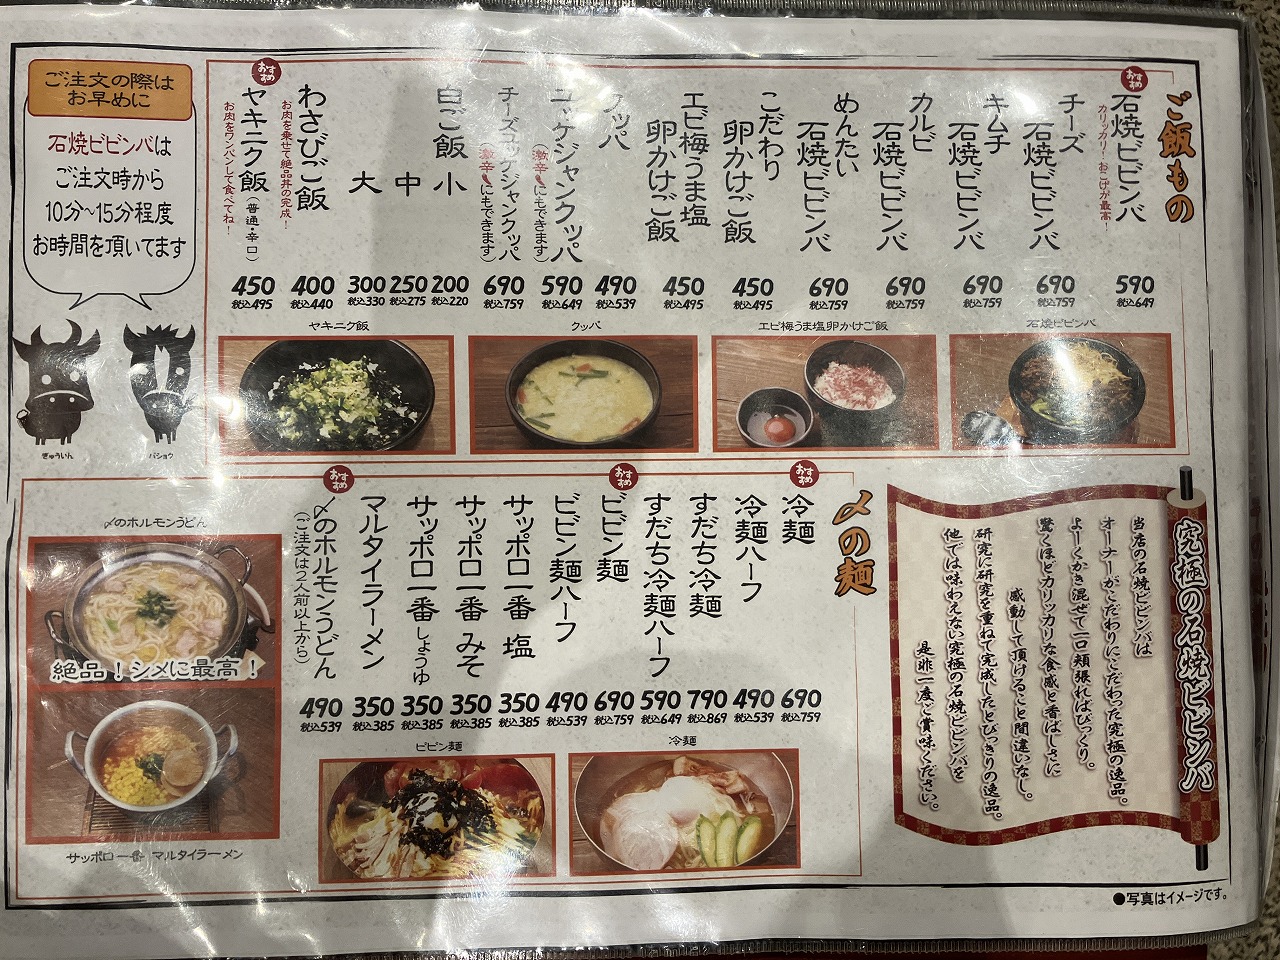 ご注文の際は
お早めに
石焼ビビンバは
ご注文時から
10分~15分程度
お時間を頂いてます
ぎゅういん
バショウ
ご飯もの
おすすめ
石焼ビビンバ
カリッカリ!おこげが最高!
590
税込649
チーズ
石焼ビビンバ
690
税込759
キムチ
石焼ビビンバ
690
税込759
カルビ
石焼ビビンバ
690
税込759
めんたい
石焼ビビンバ
690
税込759
こだわり
卵かけご飯
450
税込495
エビ梅うま塩
卵かけご飯
450
税込495
クッパ
490
税込539
ユッケジャンクッパ
(激辛にもできます)
590
税込649
チーズユッケジャンクッパ
(激辛にもできます)
690
税込759
白ご飯 小
200
税込220
中
250
税込275
大
300
税込330
わさびご飯
お肉を乗せて絶品丼の完成!
400
税込440
おすすめ
ヤキニク飯(普通・辛口)
お肉をワンバンして食べてね!
450
税込495
ヤキニク飯
クッパ
エビ梅うま塩卵かけご飯
石焼ビビンバ
〆の麺
おすすめ
冷麺
690
税込759
冷麺ハーフ
490
税込539
すだち冷麺
790
税込869
すだち冷麺ハーフ
590
税込649
おすすめ
ビビン麺
690
税込759
ビビン麺ハーフ
490
税込539
サッポロ一番 塩
350
税込385
サッポロ一番 みそ
350
税込385
サッポロ一番 しょうゆ
350
税込385
マルタイラーメン
350
税込385
おすすめ
〆のホルモンうどん
(ご注文は2人前以上から)
490
税込539
〆のホルモンうどん
絶品!シメに最高!
サッポロ一番 マルタイラーメン
ビビン麺
冷麺
究極の石焼ビビンバ
当店の石焼ビビンバは
オーナーがこだわりにこだわった究極の逸品。
よーくかき混ぜて一口頬張ればびっくり。
驚くほどカリッカリな食感と香ばしさに
感動して頂けること間違いなし。
研究に研究を重ねて完成したとびっきりの逸品。
他では味わえない究極の石焼ビビンバを
是非一度ご賞味ください。
●写真はイメージです。